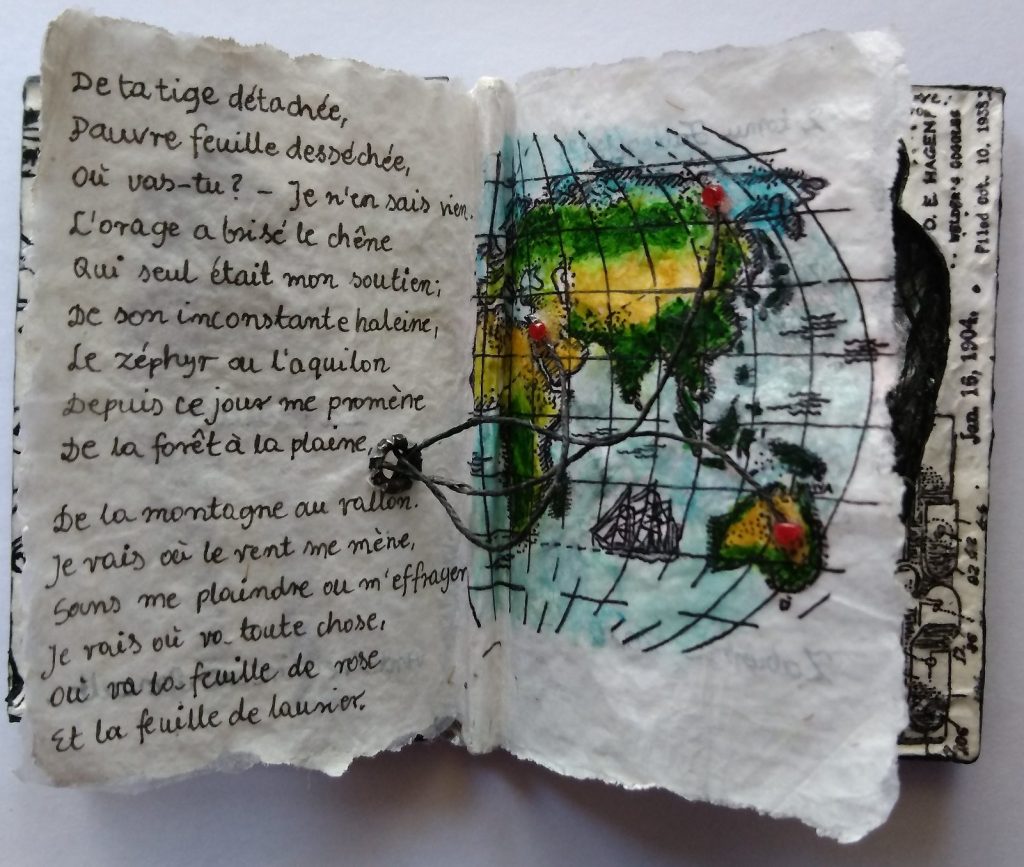 De ta tige détachée,
Pauvre feuille desséchée,
Où vas-tu? - Je n'en sais rien.
L'orage a brisé le chêne
Qui seul était mon soutien;
De son inconstante haleine,
Le zéphyr ou l'aquilon
Depuis ce jour me promène
De la forêt à la plaine,
De la montagne au vallon.
Je vais où le vent me mène,
Sans me plaindre ou m'effrayer
Je vais où va toute chose,
Où va la feuille de rose
Et la feuille de laurier.
O. E HAGEN
WELDER'S GOGGLES
Filed Oct. 10, 1933
Jan. 16, 1904.